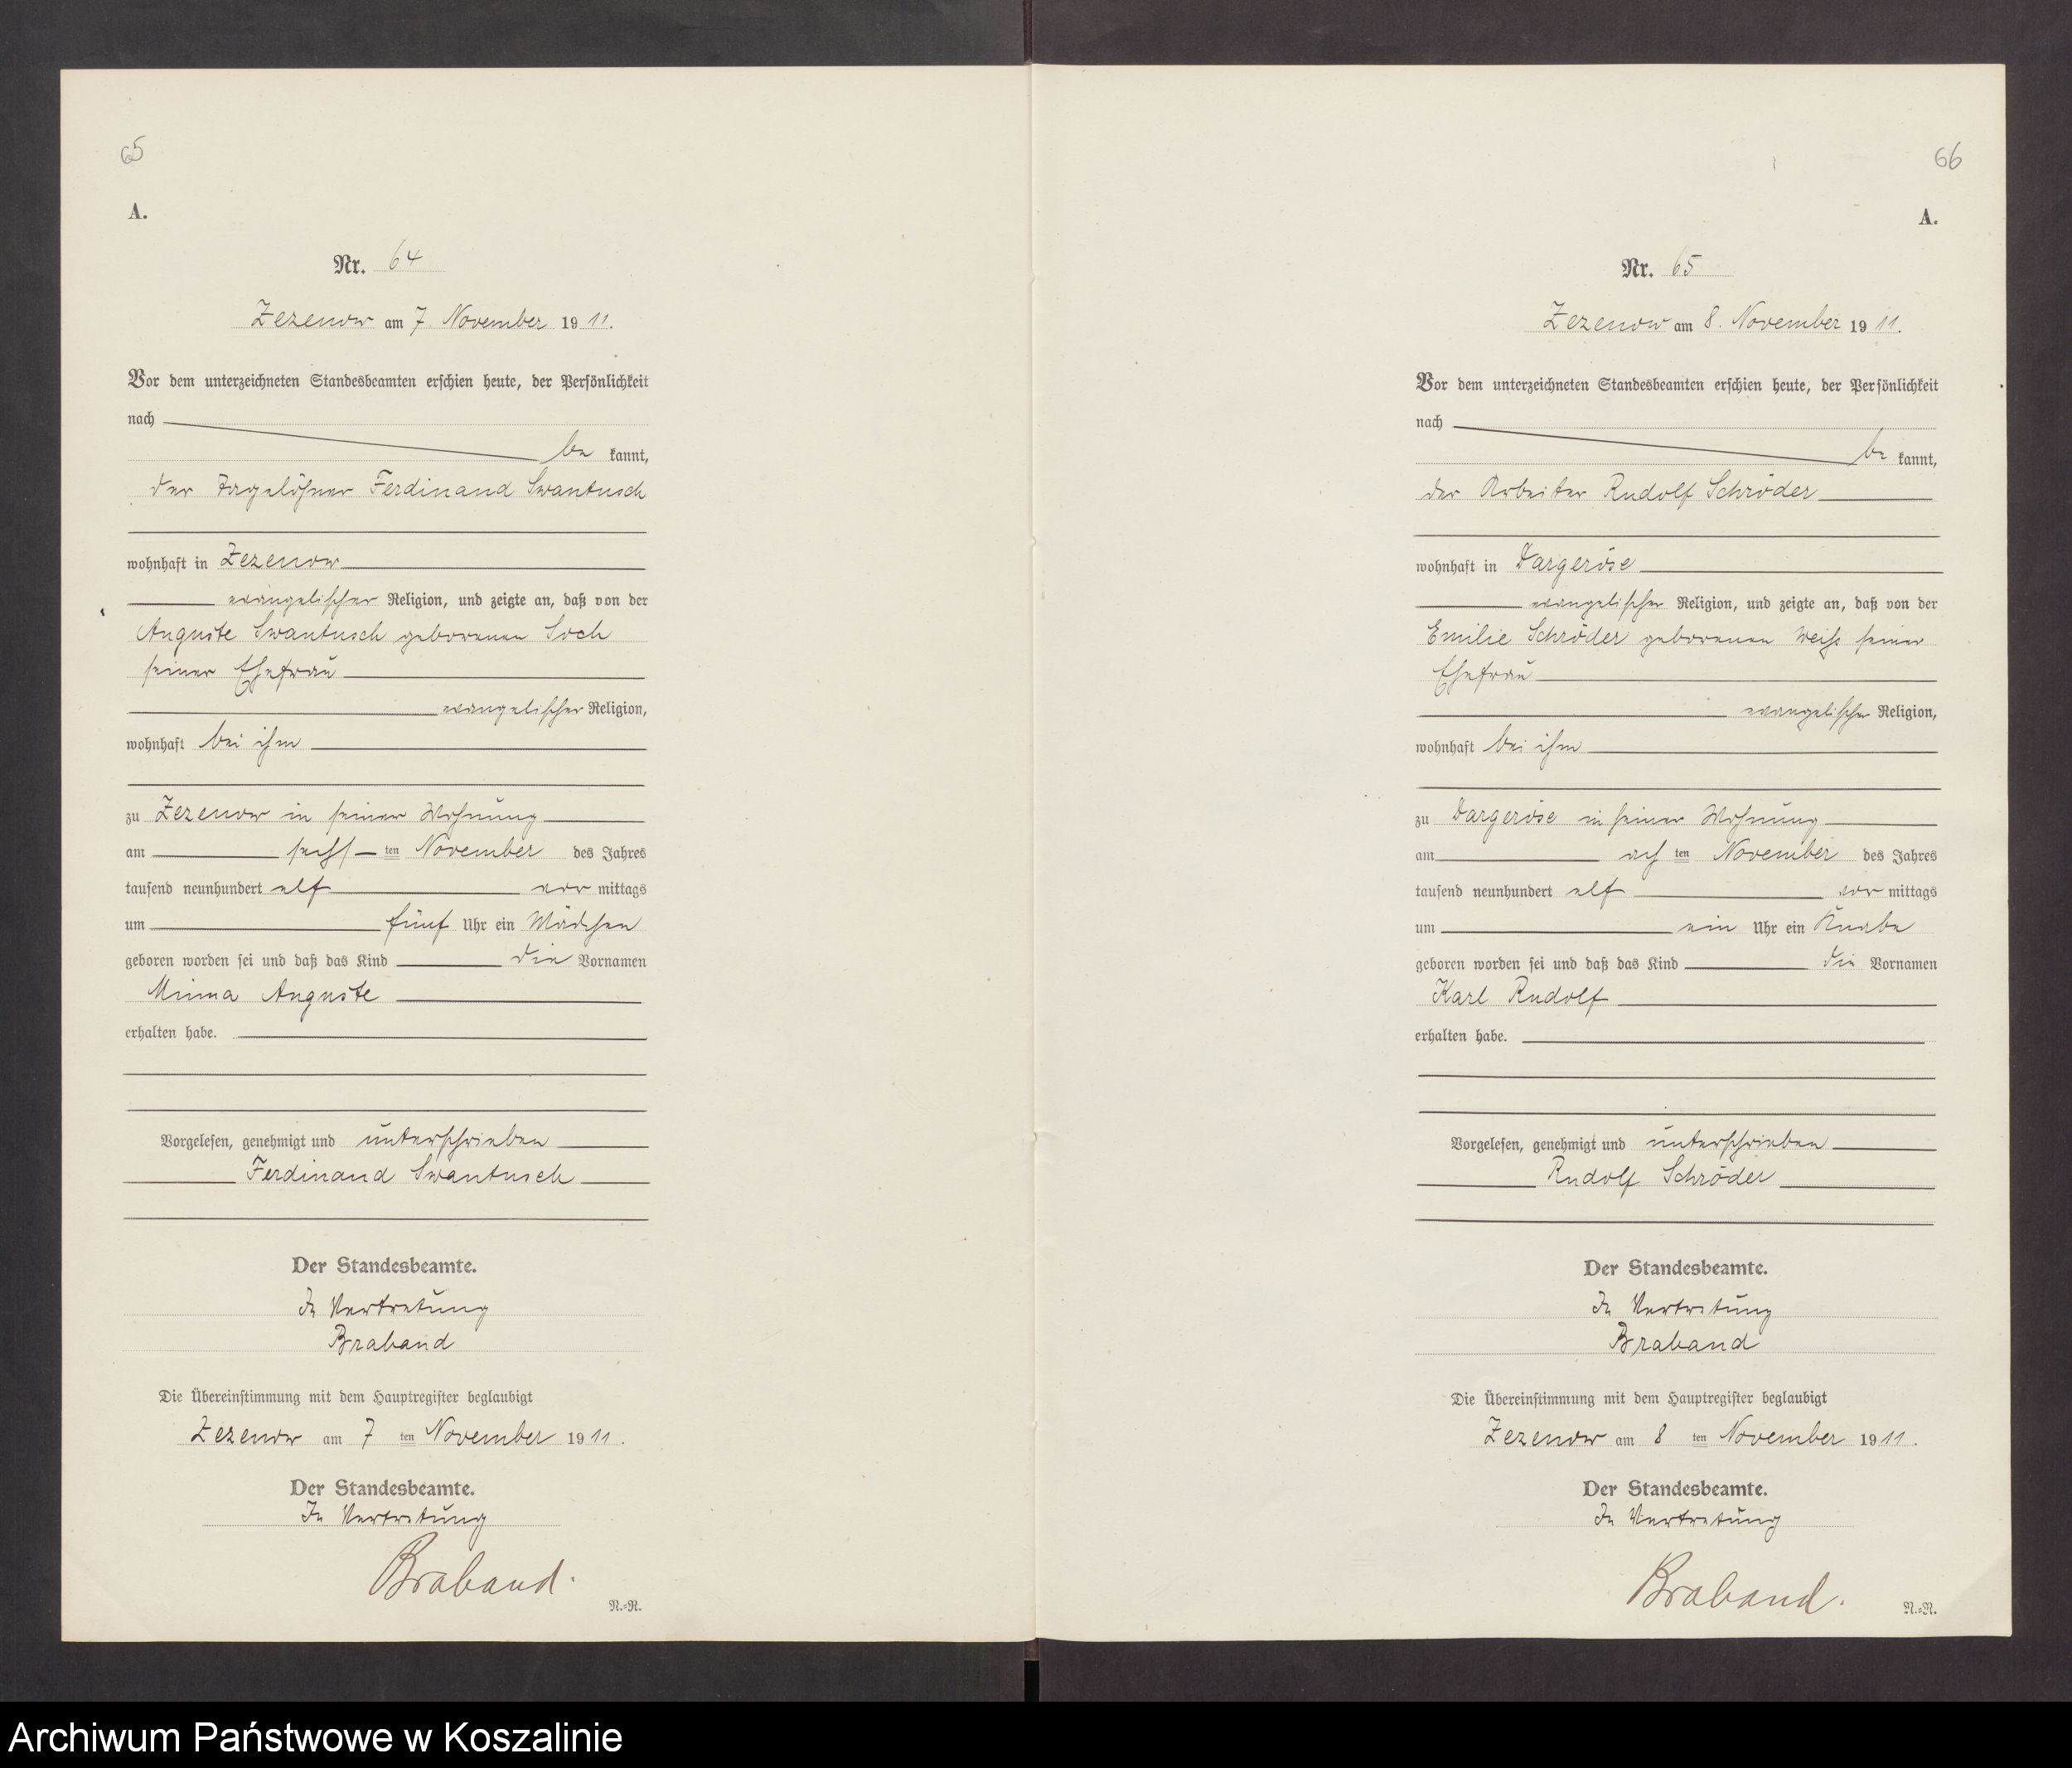 65
A.
Nr. 64
Zezenow am 7. November 1911.
Vor dem unterzeichneten Standesbeamten erschien heute, der Persönlichkeit
nach
be kannt,
der Tagelöhner Ferdinand Swantusch
wohnhaft in Zezenow
evangelischer Religion, und zeigte an, daß von der
Auguste Swantusch geborenen Soch
seiner Ehefrau
evangelischer Religion,
wohnhaft bei ihm
zu Zezenow in seiner Wohnung
am sechs ten November des Jahres
tausend neunhundert elf vor mittags
um fünf Uhr ein Mädchen
geboren worden sei und daß das Kind die Vornamen
Minna Auguste
erhalten habe.
Vorgelesen, genehmigt und unterschrieben
Ferdinand Swantusch
Der Standesbeamte.
In Vertretung
Braband
Die Übereinstimmung mit dem Hauptregister beglaubigt
Zezenow am 7 ten November 1911.
Der Standesbeamte.
In Vertretung
Braband.
N.=R.
66
A.
Nr. 65
Zezenow am 8. November 1911.
Vor dem unterzeichneten Standesbeamten erschien heute, der Persönlichkeit
nach
be kannt,
der Arbeiter Rudolf Schröder
wohnhaft in Dargeröse
evangelischer Religion, und zeigte an, daß von der
Emilie Schröder geborenen Weiß seiner
Ehefrau
evangelischer Religion,
wohnhaft bei ihm
zu Dargeröse in seiner Wohnung
am ach ten November des Jahres
tausend neunhundert elf vor mittags
um ein Uhr ein Knabe
geboren worden sei und daß das Kind die Vornamen
Karl Rudolf
erhalten habe.
Vorgelesen, genehmigt und unterschrieben
Rudolf Schröder
Der Standesbeamte.
In Vertretung
Braband
Die Übereinstimmung mit dem Hauptregister beglaubigt
Zezenow am 8 ten November 1911.
Der Standesbeamte.
In Vertretung
Braband.
N.=R.
Archiwum Państwowe w Koszalinie